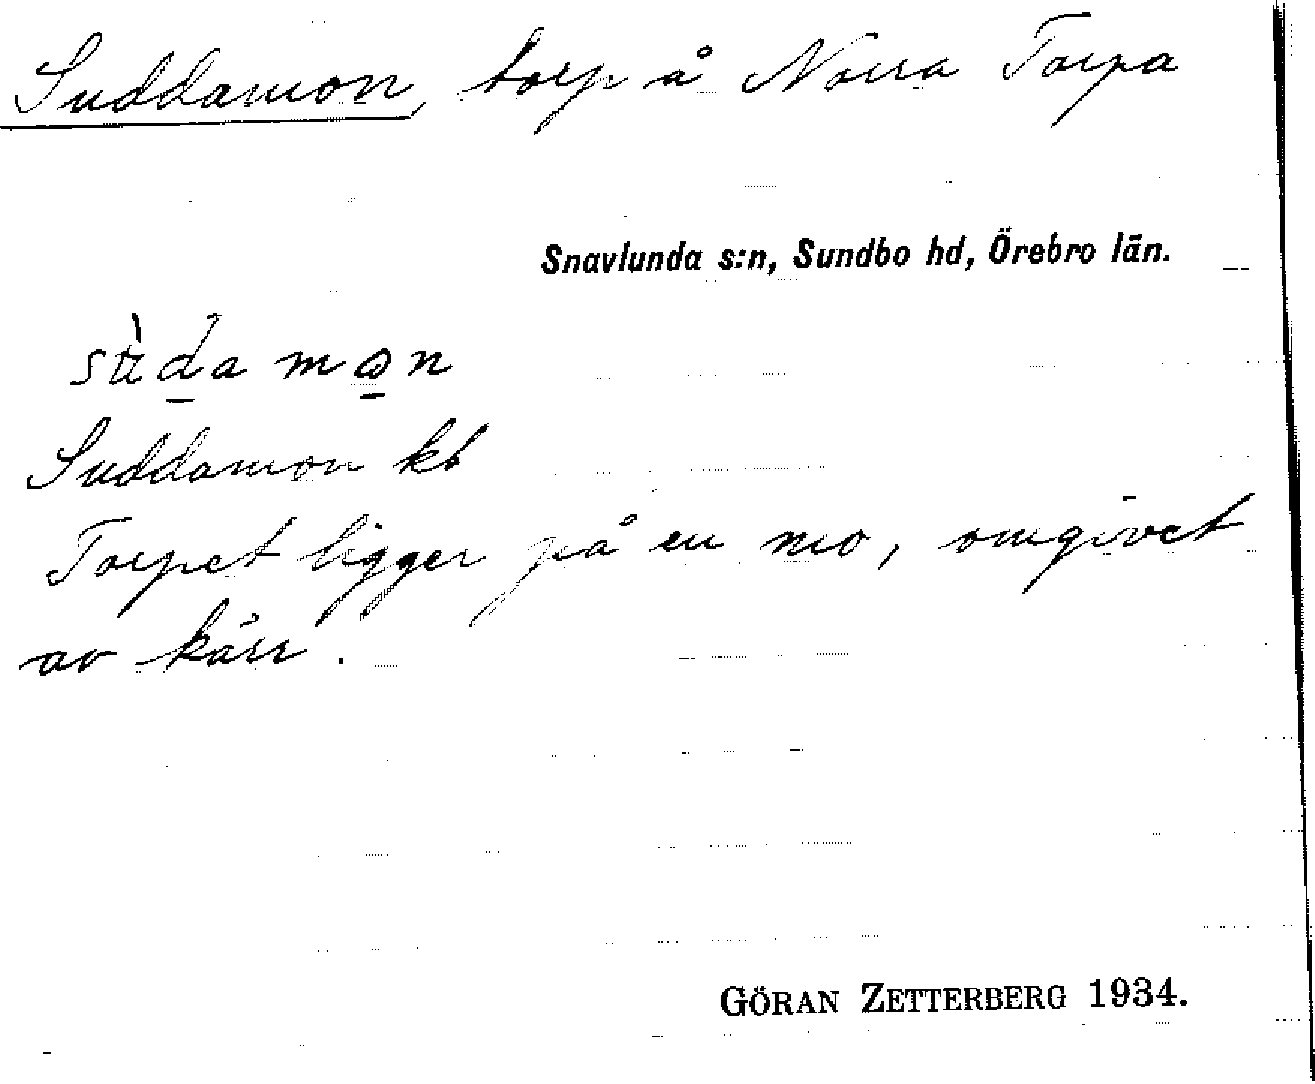 Suddamon, torp å Norra Torpa
Snavlunda s:n, Sundbo hd, Örebro län.
sùd̲a mo̲n
Suddamon kb
Torpet ligger på en mo, omgivet
av kärr.
GÖRAN ZETTERBERG 1934.